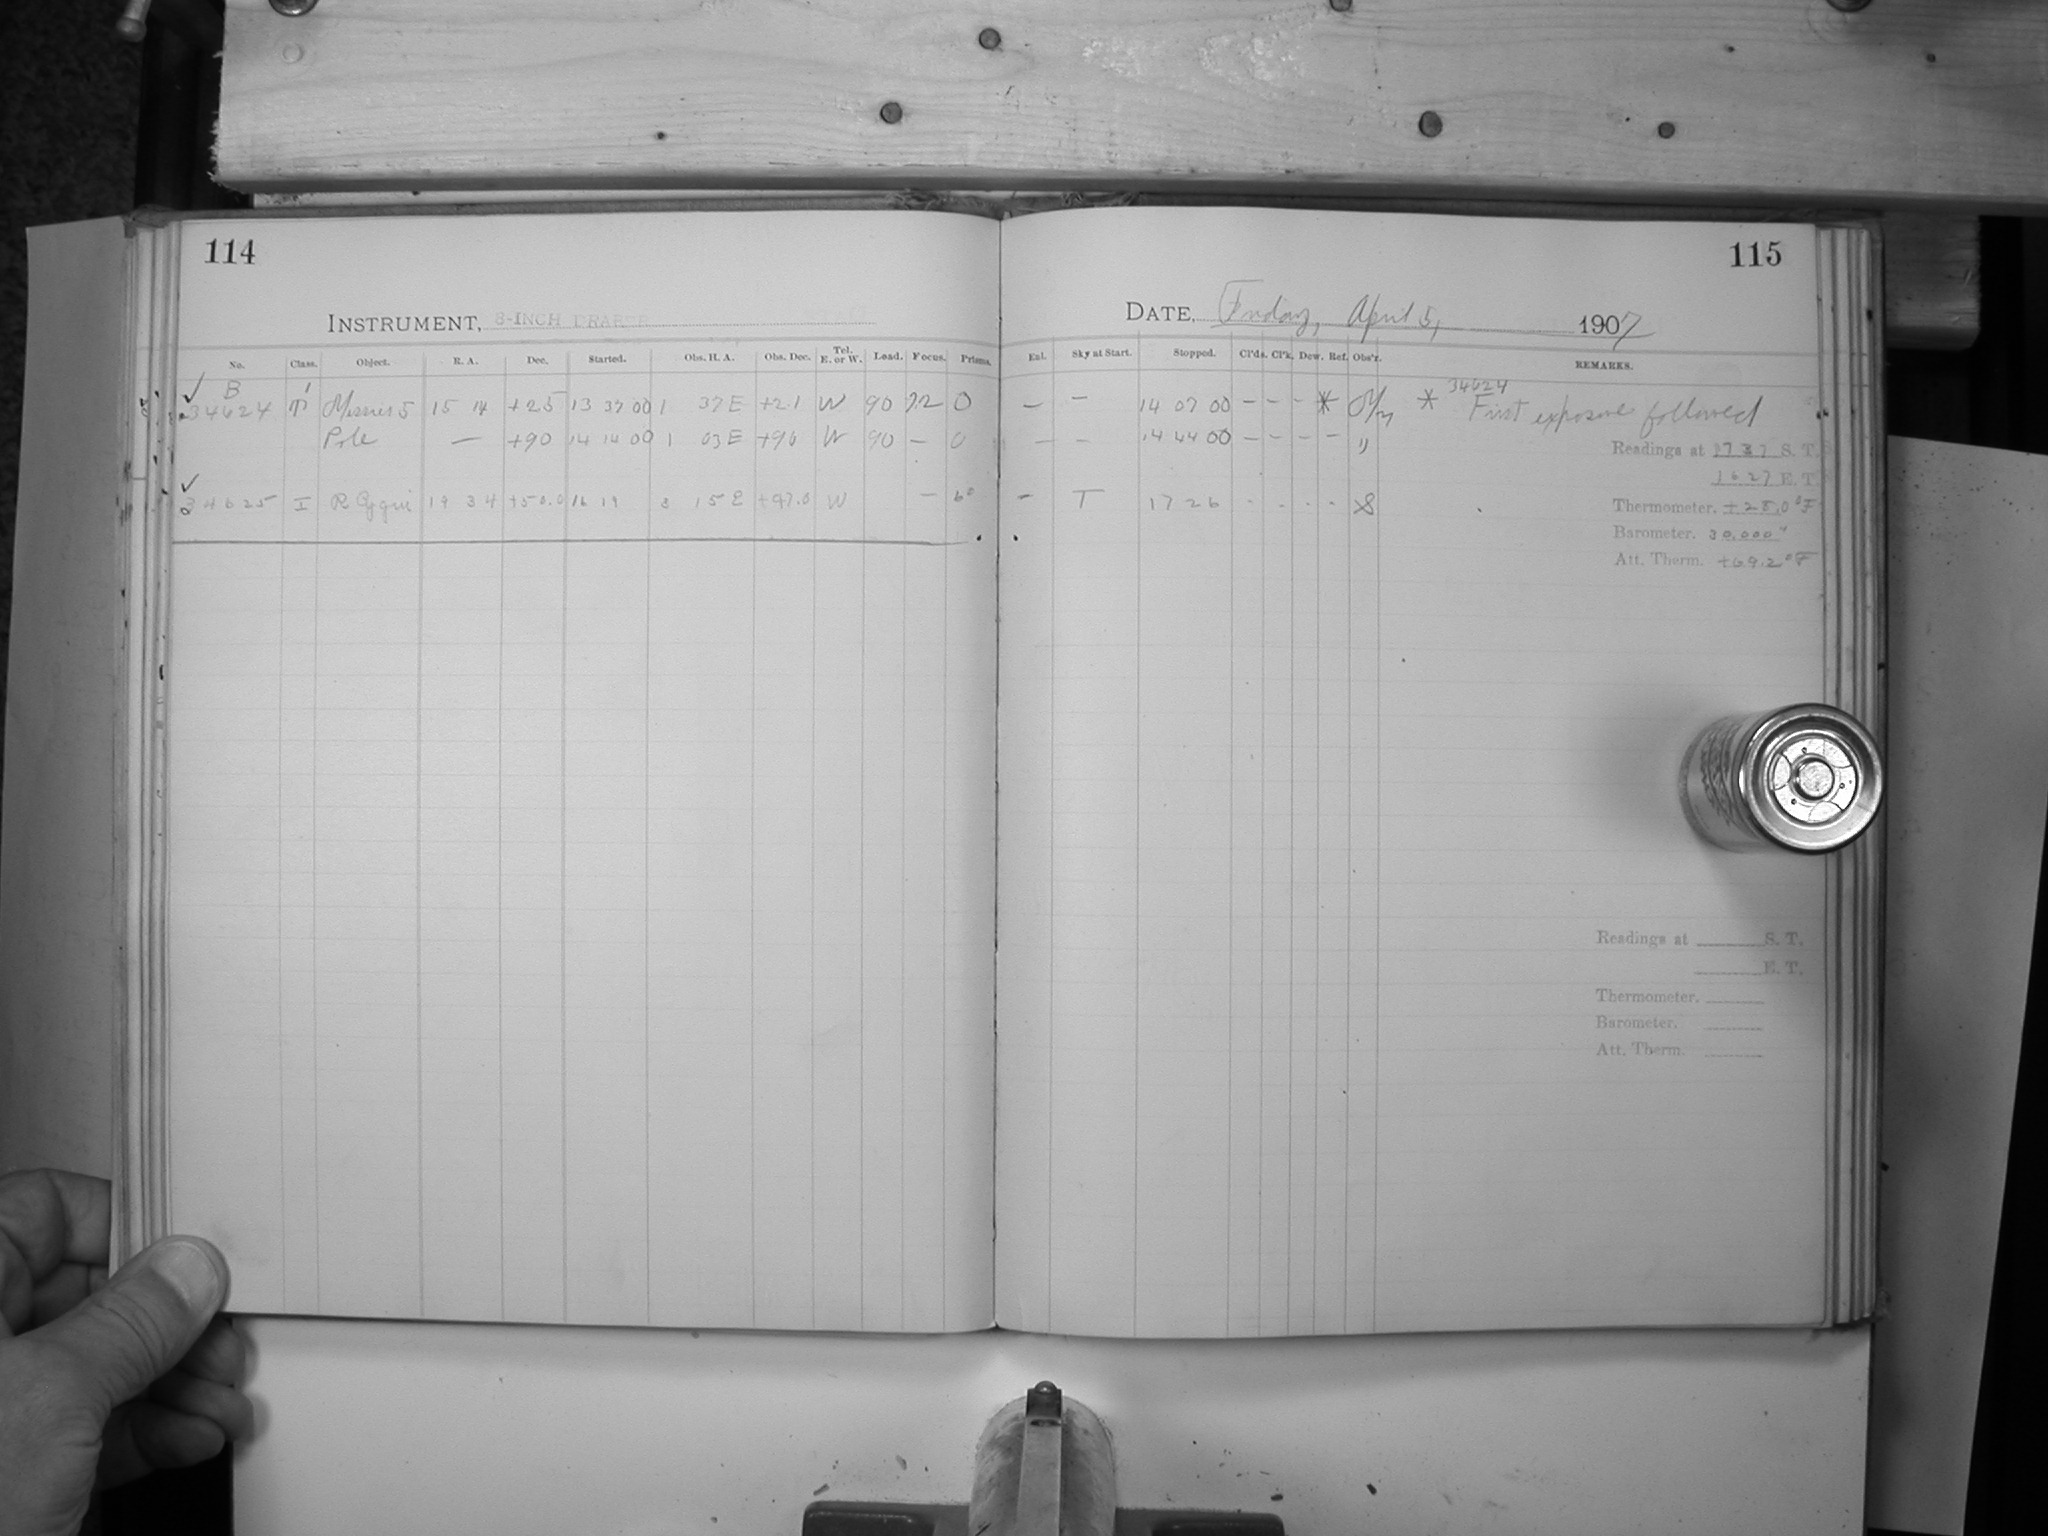 114
115
INSTRUMENT, 8-INCH DRAPER
DATE, Friday, April 5, 1907
No. Class. Object. R. A. Dec. Started. Obs. H. A. Obs. Dec. Tel. E. or W. Load. Focus. Prisms. Enl. Sky at Start. Stopped. Cl'ds. Cl'k. Dew. Ref. Obs'r. REMARKS.
✓ B 34624
34624 Messier 5 15 14 +2.5 13 37 00 1 37 E +2.1 W 90 7.2 0 — — 14 07 00 - - - * * First exposure followed
Pole — +90 14 14 00 1 03 E +90 W 90 — 0 — — 14 44 00 - - - - "
Readings at 1737 S. T.
1627 E. T.
✓
34625 I R Cygni 19 34 +50.0 16 19 3 15 E +47.0 W — 6° — T 17 26 - - - - S
Thermometer. +28.0 °F
Barometer. 30.000"
Att. Therm. +69.2 °F
Readings at S. T.
E. T.
Thermometer.
Barometer.
Att. Therm.